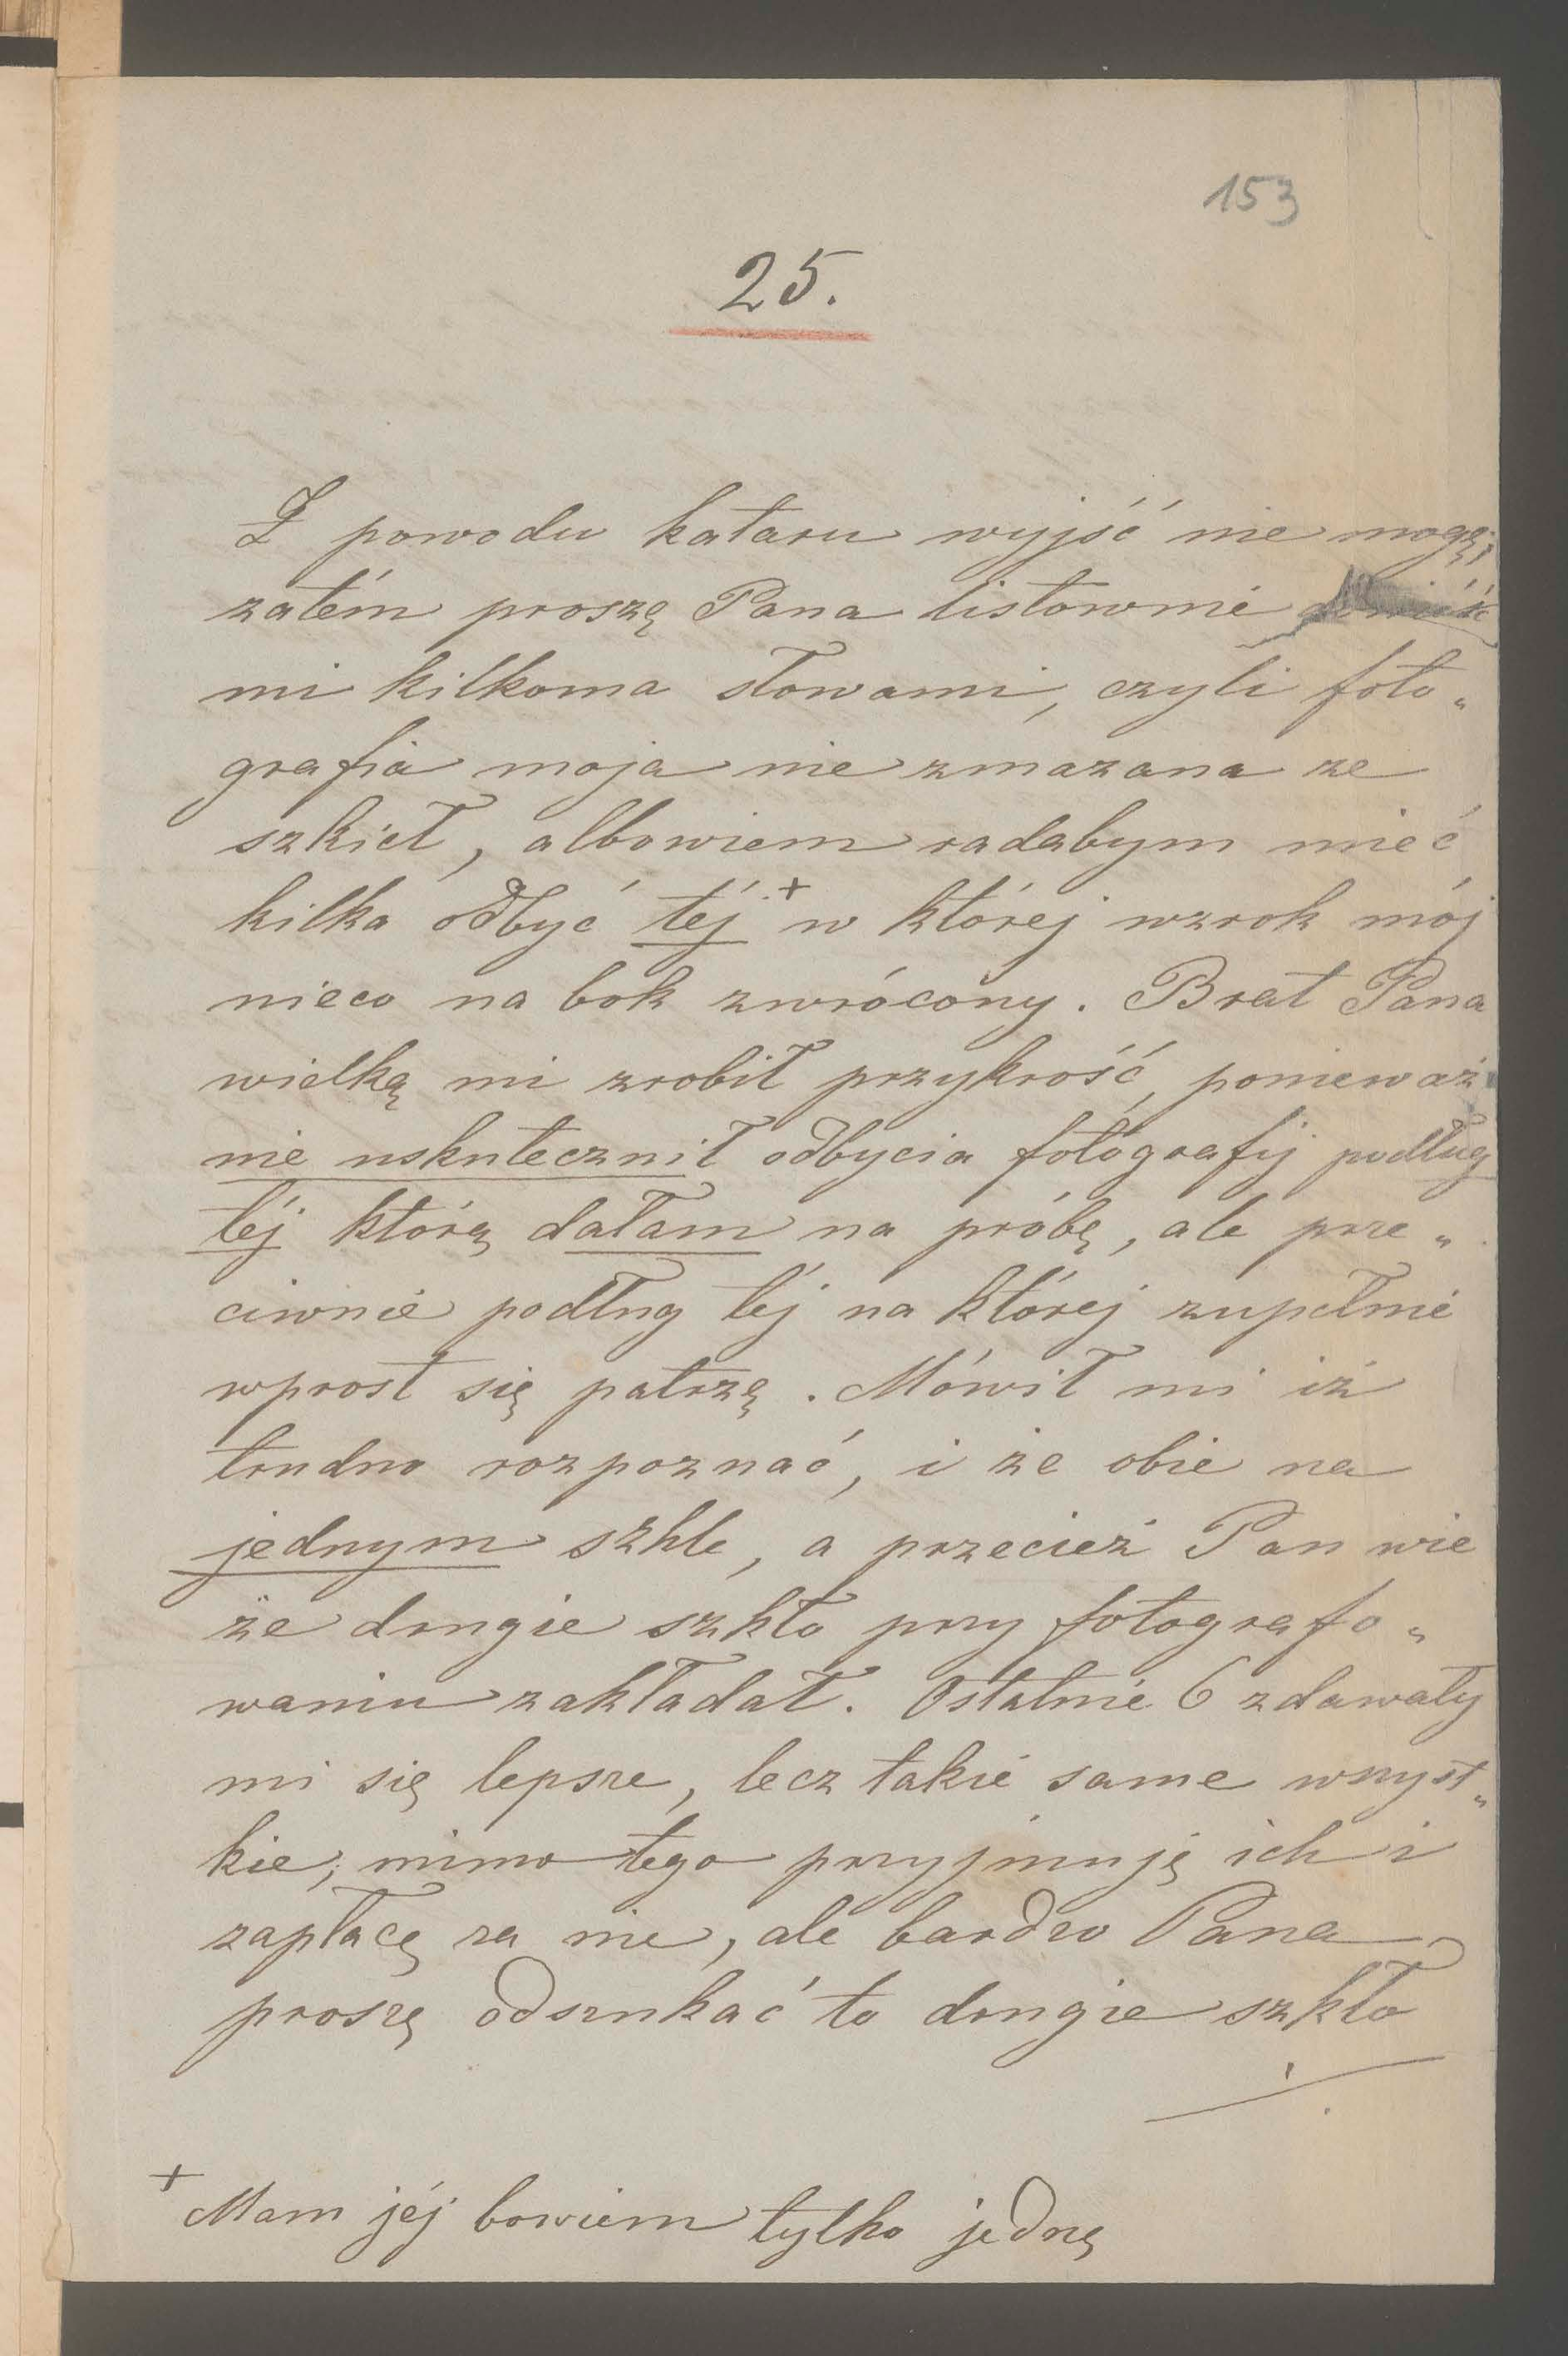 153
25.
Z powodu kataru wyjść nie mogę,
zatém proszę Pana listownie
mi kilkoma słowami, czyli foto„
grafia moja nie zmazana ze
szkieł, albowiem radabym mieć
kilka odbyć téj + w której wzrok mój
nieco na bok zwrócony. Brat Pana
wielką mi zrobił przykrość, ponieważ
nie uskutecznił odbycia fotografij podług
téj którą dałam na próbę, ale prze„
ciwnie podług téj na której zupełnie
wprost się patrzę. Mówił mi iż
trudno rozpoznać, i że obie na
jednym szkle, a przecież Pan wie
że drugie szkło przy fotografo„
waniu zakładał. Ostatnie 6 zdawały
mi się lepsze, lecz takie same wszyst„
kie, mimo tego przyjmuję ich i
zapłacę za nie, ale bardzo Pana
proszę odszukać to drugie szkło
+ Mam jéj bowiem tylko jednę